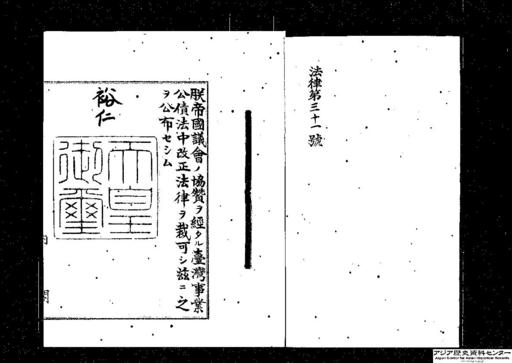 法律第三十一號
朕帝國議會ノ協贊ヲ經タル臺灣事業
公債法中改正法律ヲ裁可シ玆ニ之
ヲ公布セシム
裕仁
天皇
御璽
アジア歴史資料センター
Japan Center for Asian Historical Records